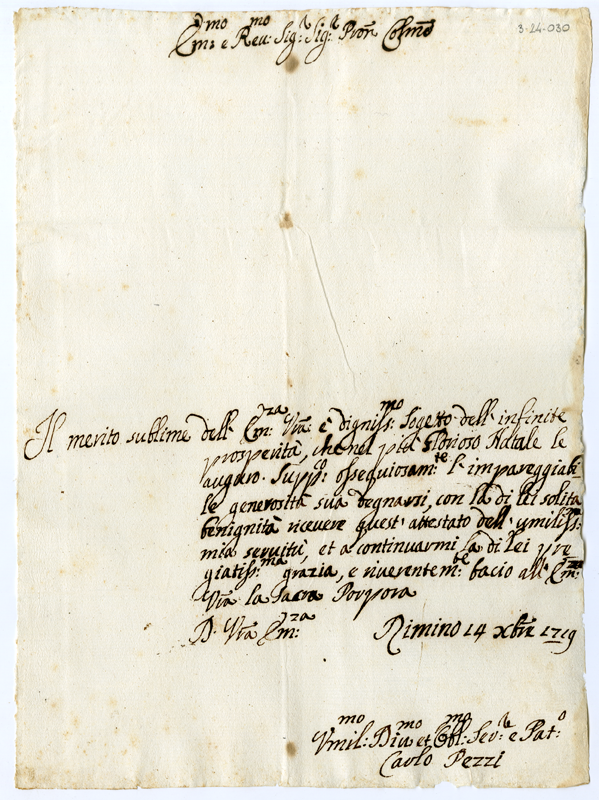 3-24-030
Em:mo e Reu:mo Sig:r Sig:r Pron Colmo
Il merito sublime dell' Em:za Vra è digniss:mo Sogetto dell' infinite
prosperità, che nel più Glorioso Natale le
auguro. Supp:o osseguiosam:te l' impareggiabi
le generosità sua degnarsi, con la di lei solita
benignità riceuere quest' attestato dell' umiliss:ma
mia seruitù, et a continuarmi la di lei pre
giatiss:ma grazia, e riuerentem:te bacio all' Em:za
Vra la Sacra Porpora
D. Vra Em:za Rimino 14 Xbre 1719
Vmil:mo Diu:mo et Obl:mo Ser:re e Pat:o
Carlo Pezzi